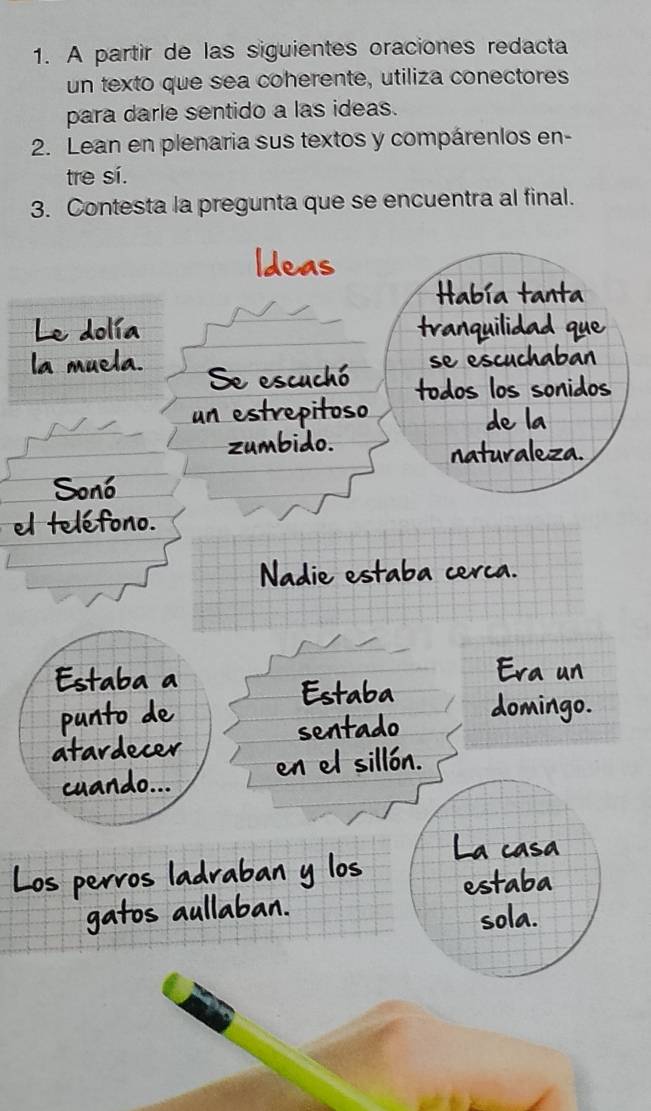 1. A partir de las siguientes oraciones redacta
un texto que sea coherente, utiliza conectores
para darle sentido a las ideas.
2. Lean en plenaria sus textos y compárenlos en-
tre sí.
3. Contesta la pregunta que se encuentra al final.
Ideas
Le dolía
la muela.
Se escuchó
un estrepitoso
zumbido.
Había tanta
tranquilidad que
se escuchaban
todos los sonidos
de la
naturaleza.
Sonó
el teléfono.
Nadie estaba cerca.
Estaba a
punto de
atardecer
cuando...
Estaba
sentado
en el sillón.
Era un
domingo.
Los perros ladraban y los
gatos aullaban.
La casa
estaba
sola.